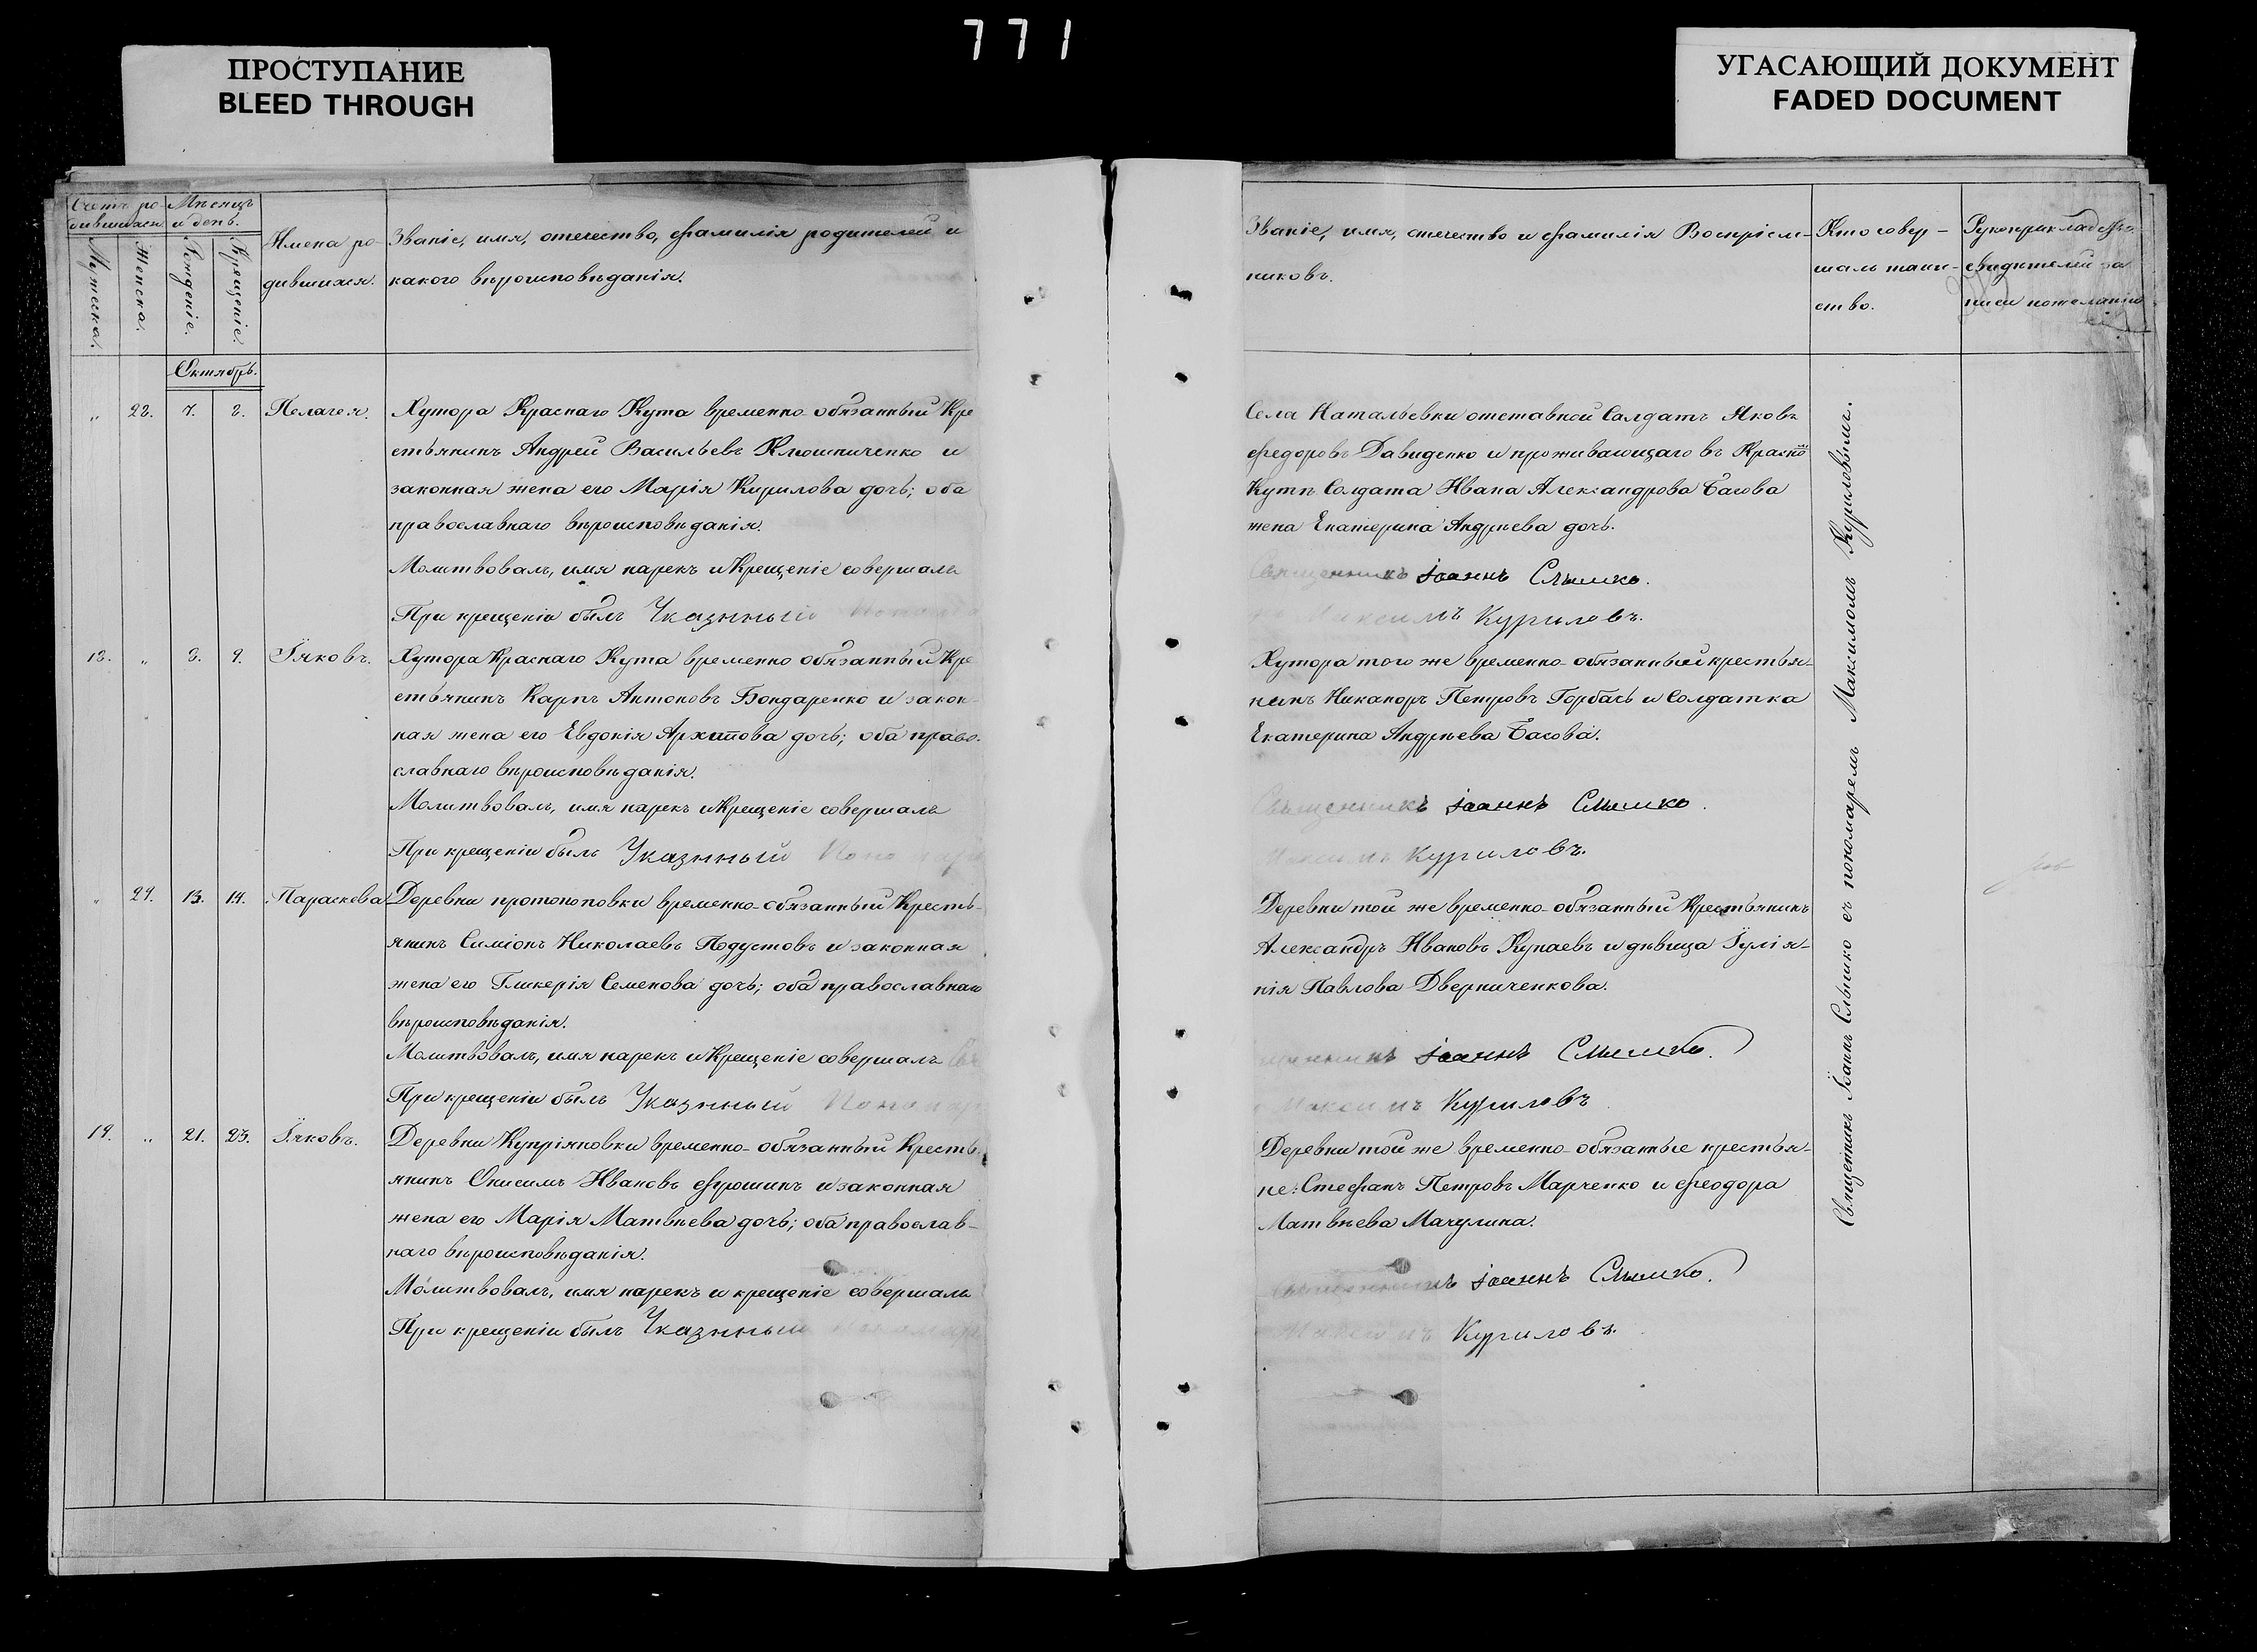 771
ПРОСТУПАНИЕ
BLEED THROUGH
УГАСАЮЩИЙ ДОКУМЕНТ
FADED DOCUMENT
Счетъ ро-
дившихся
Мужеска.
Женска.
Мѣсяцъ
и день.
Рожденіе.
Крещеніе.
Имена ро-
дившихся.
Званіе, имя, отечество, фамилія родителей и
какого вѣроисповѣданія.
Октябрь.
„ 23. 7. 8. Пелагея.
Хутора Краснаго Кута временно-обязанный Кре
стьянинъ Андрей Васильевъ Клюшниченко и
законная жена его Марія Кирилова дочь; оба
православнаго вѣроисповѣданія.
Молитвовалъ, имя нарекъ и Крещеніе совершалъ
При крещеніи былъ Указнный
18. „ 8. 9. Іяковъ.
Хутора Краснаго Кута временно обязанный Кре
стьянинъ Карпъ Антоновъ Бондаренко и закон-
ная жена его Евдокія Архипова дочь; оба право-
славнаго вѣроисповѣданія.
Молитвовалъ, имя нарекъ и Крещеніе совершалъ
При крещеніи былъ Указнный Пономарь
„ 24. 13. 14. Параскева
Деревни протопоповки временно-обязанный Кресть-
янинъ Симіонъ Николаевъ Поддустовъ и законная
жена его Гликерія Семенова дочь; оба православнаго
вѣроисповѣданія.
Молитвовалъ, имя нарекъ и Крещеніе совершалъ
При крещеніи былъ Указнный Пономарь
19. „ 21. 23. Іяковъ.
Деревни Купріяновки временно-обязанный Кресть-
янинъ Онисимъ Ивановъ Фрошинъ и законная
жена его Марія Матвѣева дочь; оба православ-
наго вѣроисповѣданія.
Молитвовалъ, имя нарекъ и крещеніе совершалъ
При крещеніи былъ Указнный
Званіе, имя, отечество и фамилія Воспріем-
никовъ.
Кто совер-
шалъ таин-
ство.
Рукоприкладство
свидѣтелей за
писи по желанію
Села Натальевки отставной Солдатъ Яковъ
Федоровъ Давиденко и проживающаго въ Красно
Кутѣ Солдата Ивана Александрова Басова
жена Екатерина Андрѣева дочь.
Священникъ Іоаннъ Слышко.
Максимъ Куриловъ.
Хутора того же временно-обязанный крестья-
нинъ Никаноръ Петровъ Горбачъ и Солдатка
Екатерина Андрѣева Басова.
Священникъ Іоаннъ Слышко.
Максимъ Куриловъ.
Деревни той же временно-обязанный Крестьянинъ
Александръ Ивановъ Кунаевъ и дѣвица Іулія-
нія Павлова Дверниченкова.
Іоаннъ Слышко.
Максимъ Куриловъ
Деревни той же временно-обязанные крестья-
не: Стефанъ Петровъ Марченко и Феодора
Матвѣева Мачулина.
Іоаннъ Слышко.
Максимъ Куриловъ.
Священникъ Іоаннъ Слышко съ пономаремъ Максимомъ Куриловымъ.